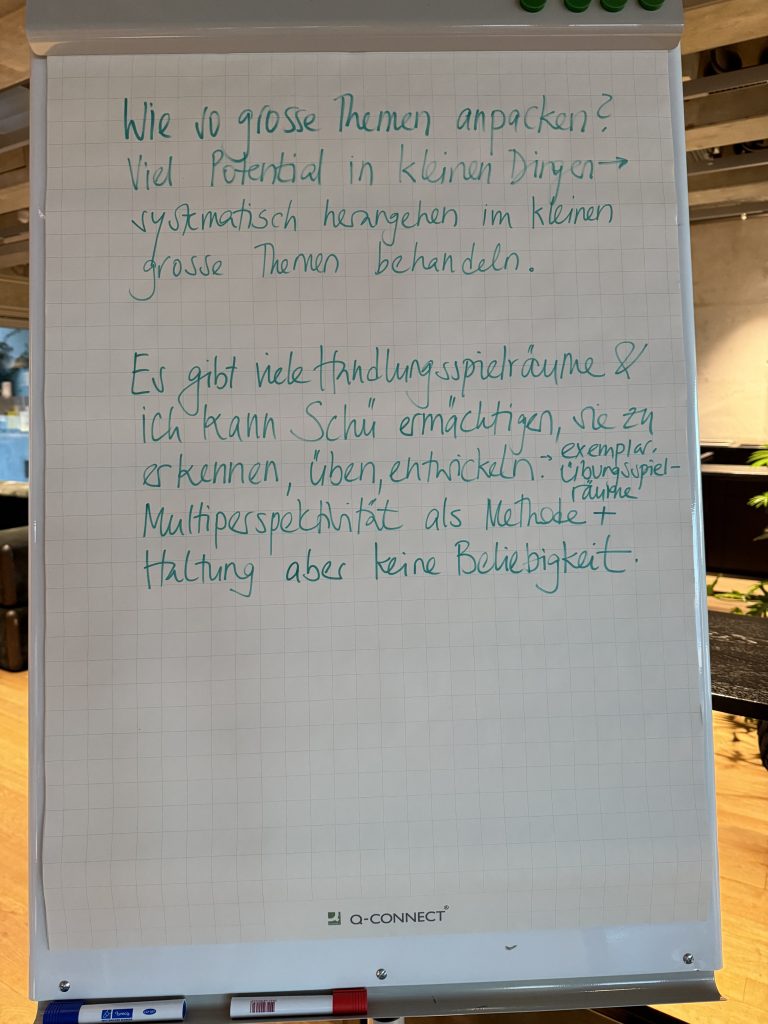 Wie so grosse Themen anpacken?
Viel Potential in kleinen Dingen →
systematisch herangehen im kleinen
grosse Themen behandeln.
Es gibt viele Handlungsspielräume &
ich kann Schü ermächtigen, sie zu
erkennen, üben, entwickeln. → exemplar.
Übungsspiel-
räume
Multiperspektivität als Methode +
Haltung aber keine Beliebigkeit.
Q-CONNECT®